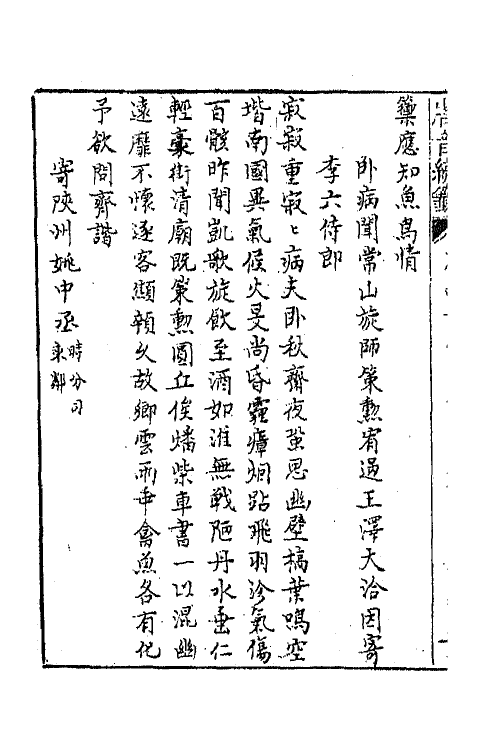 籞應知魚鳥情
卧病聞常山旋師策勲宥過王澤大洽因寄
李六侍郎
寂寂重寂々病夫卧秋齋夜蛩思幽壁槁葉鳴空
堦南國異氣候火旻尚昏霾瘴烟跕飛羽沴氣傷
百骸昨聞凱歌旋飲至酒如淮無戰陋丹水垂仁
輕藁街清廟既策勲圓丘俟燔柴車書一以混幽
遠靡不懷逐客顦顇久故鄉雲雨乖禽魚各有化
予欲問齊諧
寄陜州姚中丞
時分司
東都